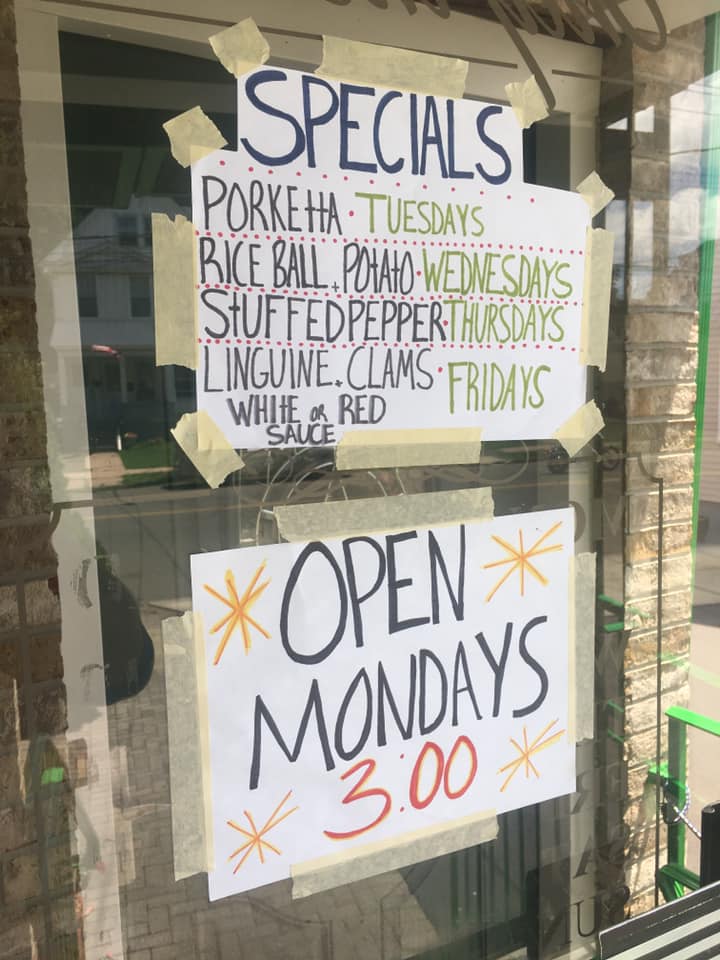 SPECIALS
PORKEttA · TUESDAYS
RICE BALL + POtAtO · WEDNESDAYS
StUFFED PEPPER · THURSDAYS
LINGUINE + CLAMS · FRIDAYS
WHItE OR RED
SAUCE
OPEN
MONDAYS
3:00